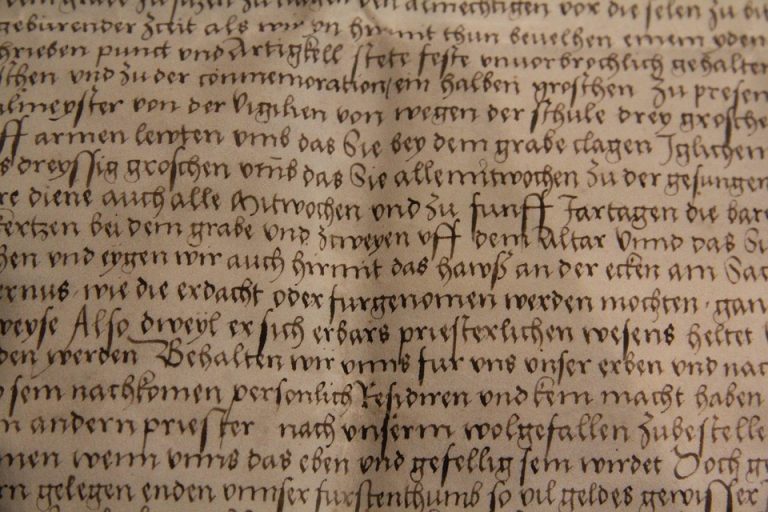 den almechtigen vor die selen zu bit
geburender Zceit als wir yn hirmit thun bevelhen einem yden
hrieben punct und Artigkell stete feste unvorbrochlich gehalten
schen und zu der commemoration ein halben groschen Zu presen
almeyster von der Vigilien von wegen der schule drey grosche
ff armen lewten umb das Sie bey dem grabe clagen Iglichem
s dreyssig groschen umb das Sie alle mitwochen zu der gesungen
re diene auch alle Mitwochen und zu funff Jartagen die bare
kertzen bei dem grabe und zcweyen uff dem Altar Unnd das Si
hen und eygen wir auch hirmit das hawß an der ecken am Sac
ernus wie die erdacht oder furgenomen werden mochten gan
weyse Also dweyl er sich erbars priesterlichen wesens heltet
den werden Behalten wir unns fur uns unser erben und nac
sein nachkomen personlich Residiren und kein macht haben
n andern priester nach unserm wolgefallen Zubestelle
men wenn unns das eben und gefellig sein wirdet Doch ge
rn gelegen enden unnser furstenthumb so vil geldes gewisser